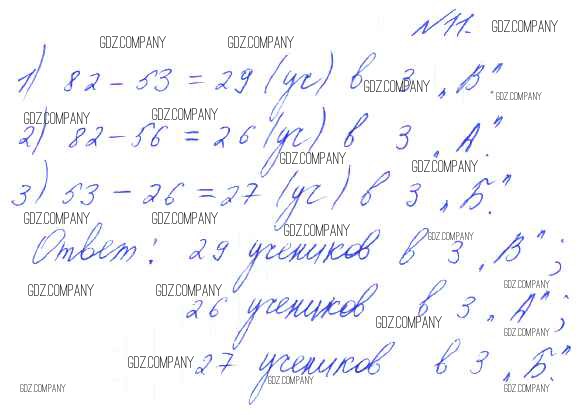 N11.
GDZ.COMPANY
GDZ.COMPANY GDZ.COMPANY
1) 82 - 53 = 29 (уч) в 3 „В“.
GDZ.COMPANY
GDZ.COMPANY
GDZ.COMPANY GDZ.COMPANY
2) 82 - 56 = 26 (уч) в 3 „А“.
GDZ.COMPANY GDZ.COMPANY
3) 53 - 26 = 27 (уч) в 3 „Б“.
GDZ.COMPANY GDZ.COMPANY GDZ.COMPANY
GDZ.COMPANY
Ответ: 29 учеников в 3 „В“;
GDZ.COMPANY GDZ.COMPANY GDZ.COMPANY
26 учеников в 3 „А“;
GDZ.COMPANY GDZ.COMPANY
27 учеников в 3 „Б“.
GDZ.COMPANY
GDZ.COMPANY GDZ.COMPANY GDZ.COMPANY